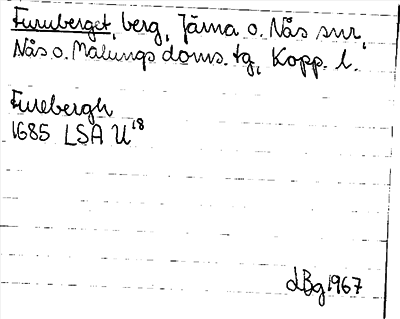 Furuberget, berg, Järna o. Nås snr,
Nås o. Malungs doms. tg, Kopp. l.
Furebergh
1685 LSA U18
dBg 1967